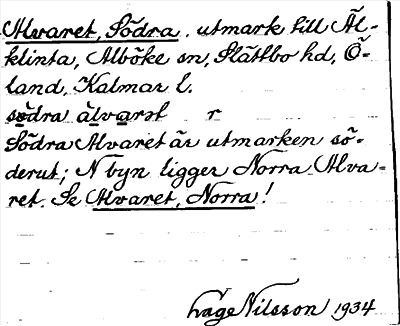 Alvaret, Södra, utmark till Äl-
klinta, Alböke sn, Slättbo hd, Ö-
land, Kalmar l.
södra älvarət r
Södra Alvaret är utmarken sö-
derut; N byn ligger Norra Alva-
ret. Se Alvaret, Norra!
Åge Nilsson 1934